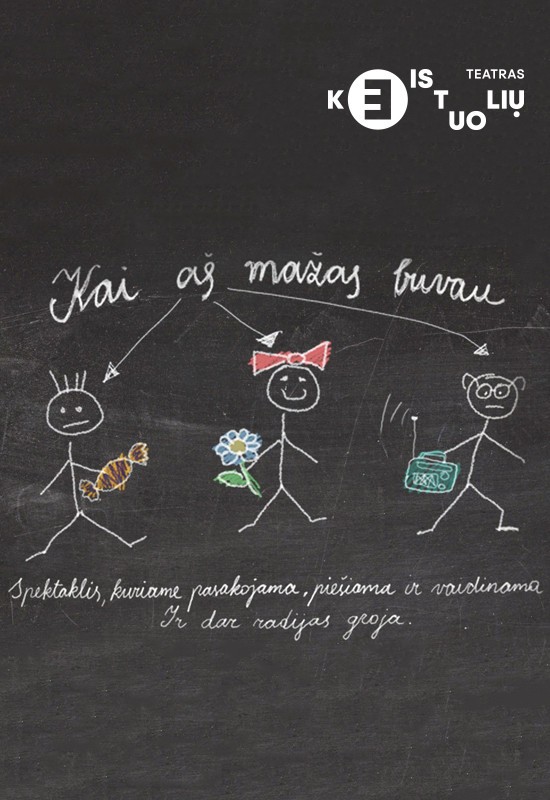 TEATRAS
KEISTUOLIŲ
Kai aš mažas buvau
Spektaklis, kuriame pasakojama, piešiama ir vaidinama
Ir dar radijas groja.